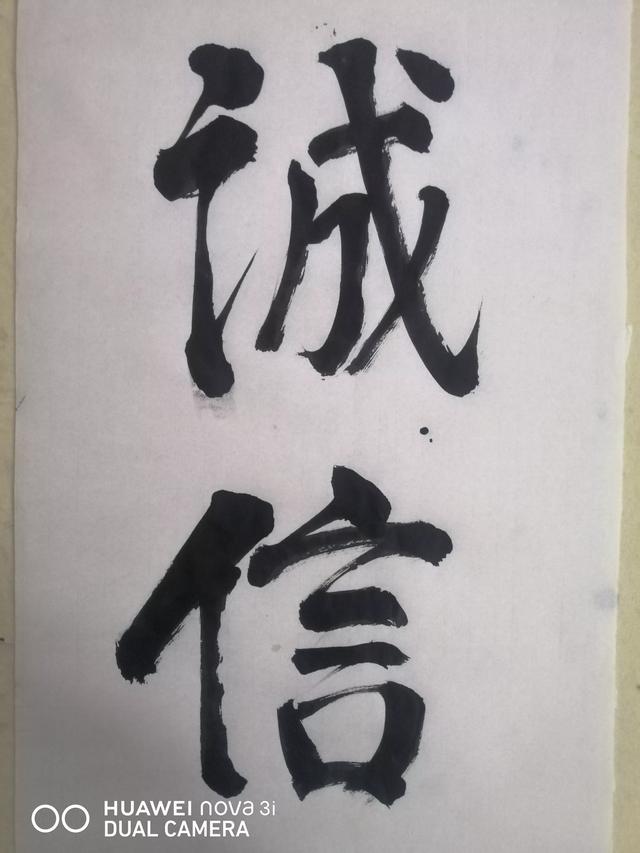 诚
信
HUAWEI nova 3i
DUAL CAMERA